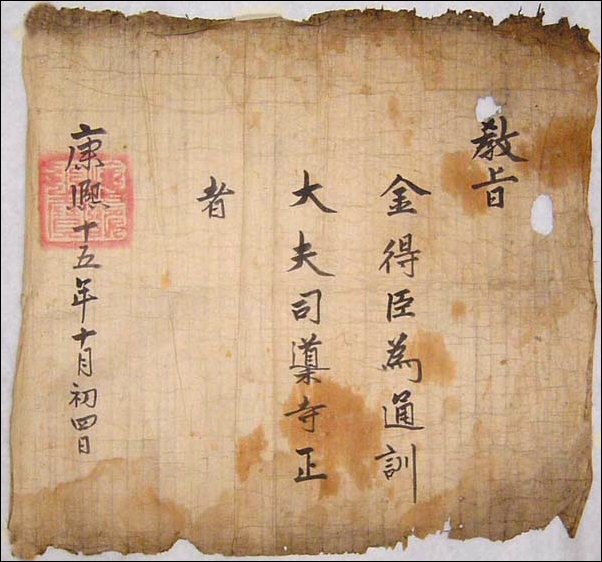 敎旨
金得臣為通訓
大夫司導寺正
者
康熙十五年十月初四日